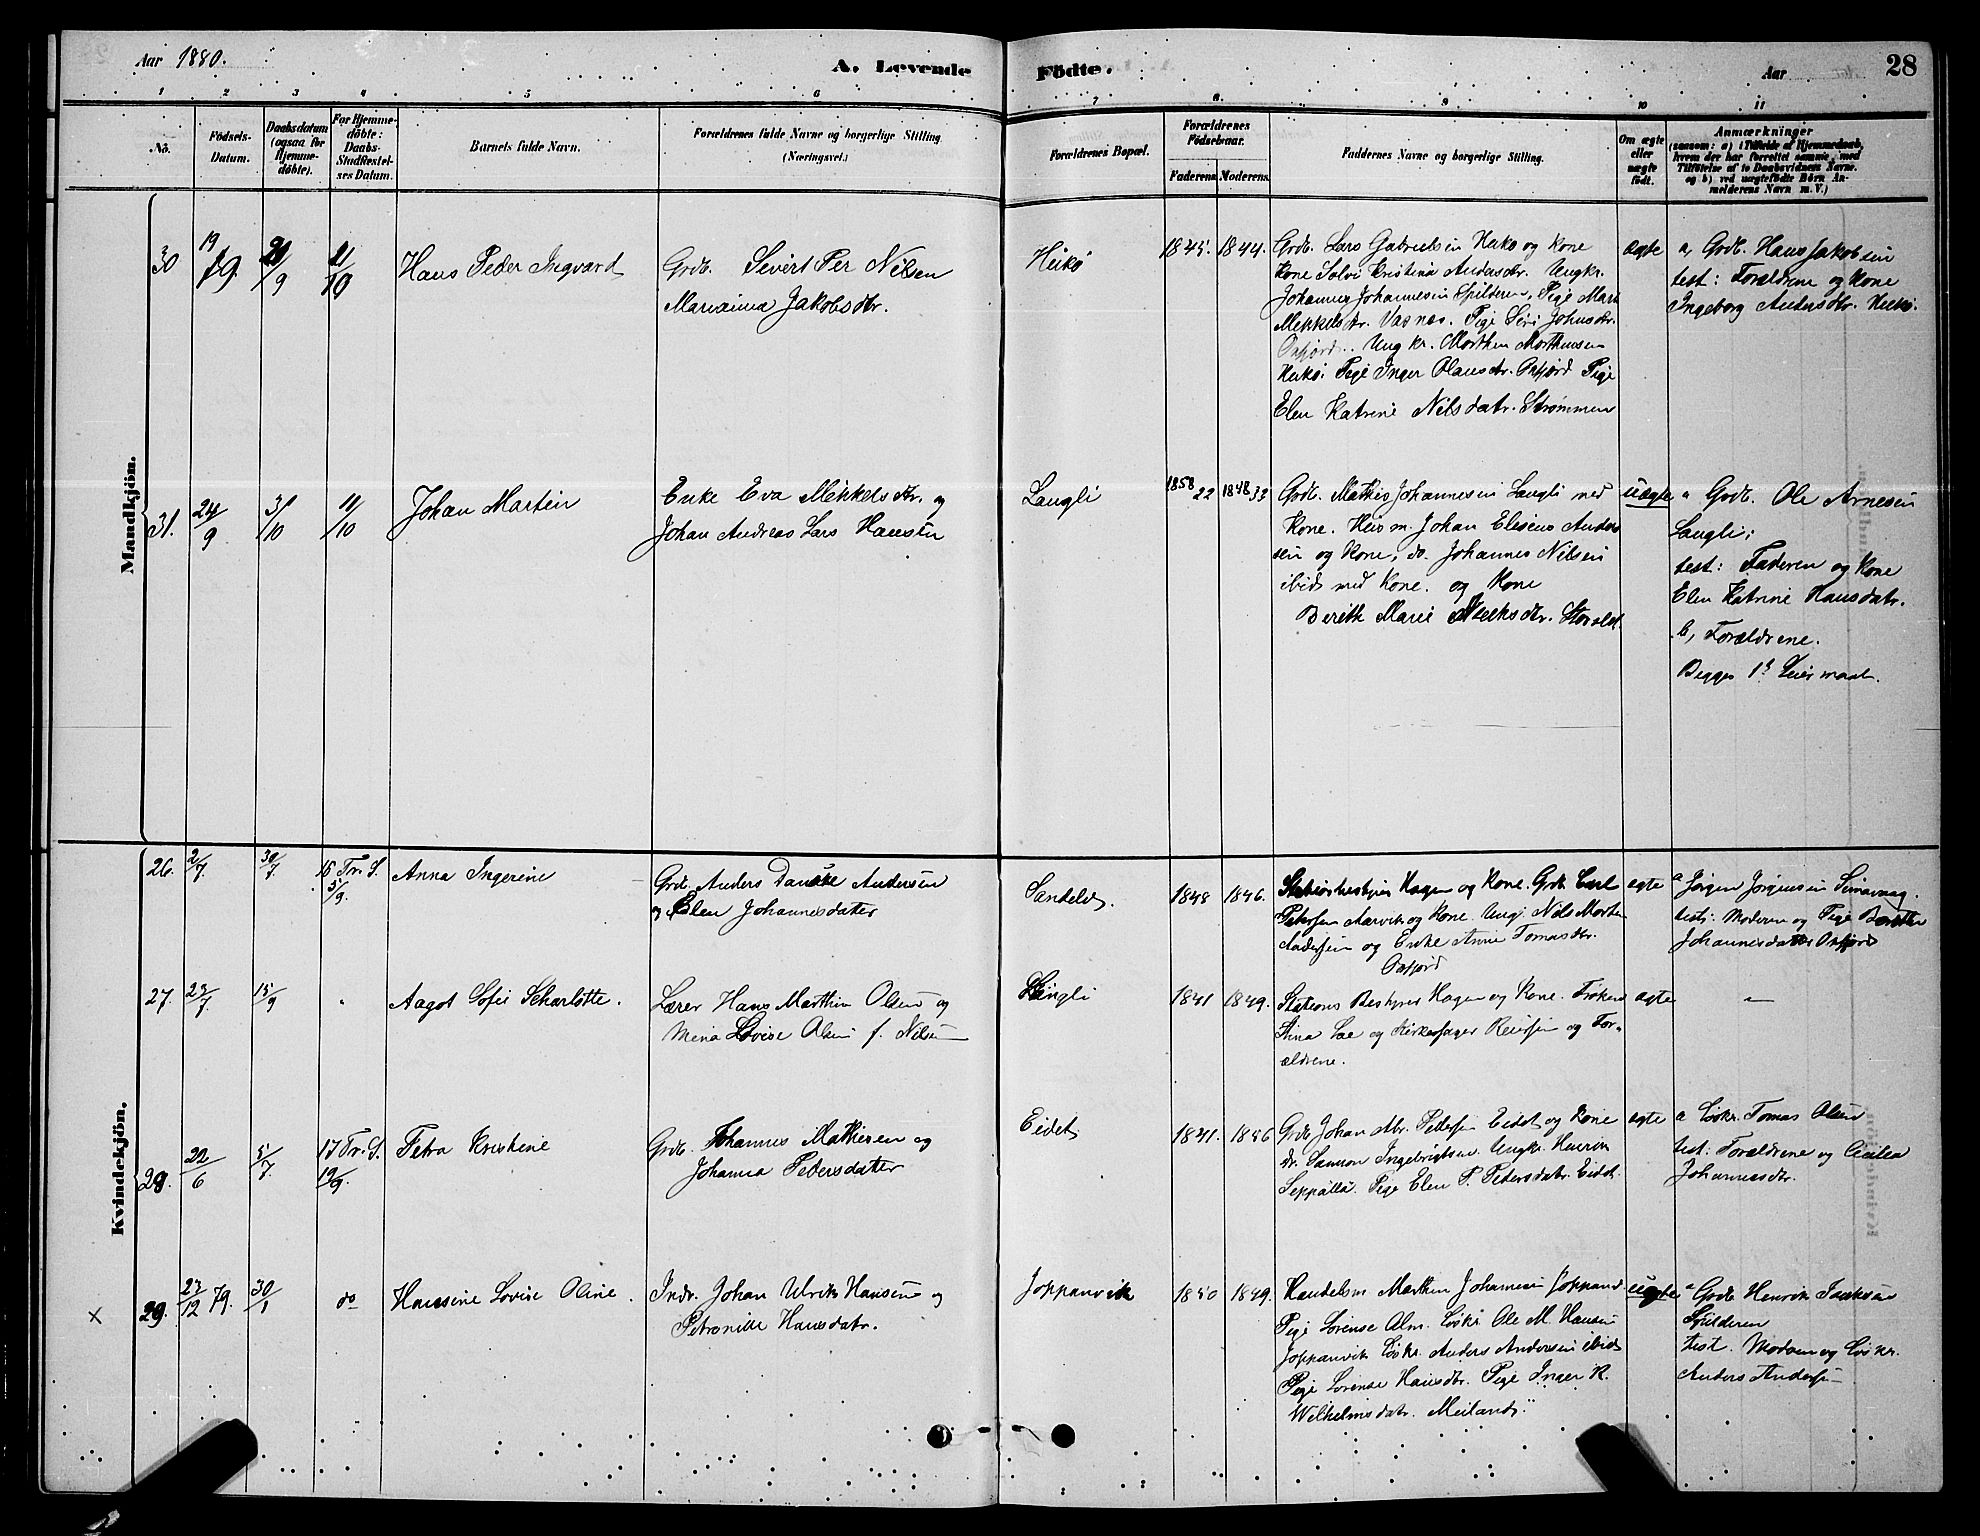 Aar 1880.
A. Levende
Födte.
Aar
28
1 2 3 4 5 6 7 8. 9 10 11
No.
Födsels-
Datum.
Daabsdatum
(ogsaa for
Hjemme-
döbte).
For Hjemme-
döbte:
Daabs-
Stadfæstel-
ses Datum.
Barnets fulde Navn.
Forældrenes fulde Navne og borgerlige Stilling
(Næringsvei.)
Forældrenes Bopæl.
Forældrenes
Födselsaar.
Faderens.
Moderens.
Faddernes Navne og borgerlige Stilling.
Om ægte
eller
uægte
födt.
Anmærkninger
(saasom: a) i Tilfælde af Hjemmedaab,
hvem der har forrettet samme, med
Tilföielse af to Daabsvidners Navne.
og b) ved uægtefödte Börn An-
melderens Navn m. V.)
Mandkjön.
30
19/9
20/9
11/10
Hans Peder Ingvard
Grdb. Sivert Per Nilsen
Marianna Jakobsdtr.
Heikö
1845. 1844.
Grdb. Lars Gabrielsen Heikö og Kone
Kone Solvi Kristina Andersdtr. Ungkr.
Johannes Johannesen Spilderen, Pige Marit
Mikkelsdtr. Vasnes. Pige Siri Johnsdtr.
Oxfjord. Ungkr. Morthen Morthensen
Heikö. Pige Inger Olausdtr. Oxfjord Pige
Elen Katrine Nilsdatr. Strømmen
ægte
a, Grdb. Hans Jakobsen
test: Forældrene og Kone
Ingeborg Andersdtr. Heikö.
31.
24/9
3/10
11/10
Johan Martin
Enke Eva Mikkelsdtr. og
Johan Andreas Lars Hansen
Langli
1858 22 1848 32
Grdb. Mathis Johannesen Langli med
Kone. Huusm. Johan Eliseus Ander-
sen og Kone, do. Johannes Nilsen
ibid med Kone. og Kone
Berith Marie
uægte
a Grdb. Ole Arnesen
Langli;
test: Faderen og Kone
Elen Katrine Hansdatr.
b, Forældrene.
Begges 1ste Leiermaal.
Kvindekjön.
26.
2/7
30/7
15 Tr. S.
5/9.
Anna Ingerine
Grdb. Anders Danske Andersen
og Elen Johannesdater
Sandeld.
1848 1846.
Stationsbestyrer Hagen og Kone. Grdb. Carl
Petersen Aarvik og Kone. Ungk. Nils Morten
Andersen og Enke Anne Tomasdtr.
Oxfjord
ægte
a Jørgen Jørgensen
test: Moderen og Pige Berethe
Johannesdatr Oxfjord
27.
15/9
Aagot Sofie Scharlotte.
Lærer Hans Marthin Olsen og
Mina Lovise Olsen f. Nilsen
Langli
1841 1849.
Stations Bestyrer Hagen og Kone. Frøken
Stina Lae og Kirkesanger Reiersen og For-
ældrene.
ægte
—
28.
22/6
5/7
17 Tr. S.
19/9.
Petra Kristine
Grdb. Johannes Mathisen og
Johanna Pedersdater
Eidet
1841. 1856
Grdb. Johan Abr. Pettersen Eidet og Kone
Dr. Samson Ingebrigtsen. Ungkr. Henrik
Seppälä. Pige Elen P. Petersdatr. Eidet.
ægte
a Løskr. Tomas Olsen
test: Forældrene og Cicilia
Johannesdtr.
×
29.
23/12 79.
30/1
do
Hansine Lovise Oline.
Indr. Johan Ulrik Hansen og
Petronille Hansdatr.
Joppanvik
1850 1849.
Handelsm. Marthin Johannesen Joppanv
Pige Lorense Alm. Løskr. Ole M. Hansen
Joppanvik Løskr. Anders Andersen ibid
Pige Lorense Hansdtr. Pige Inger K.
Wilhelmsdatr. Meiland.
uægte
a Grdb Henrik Isaksen
Spilderen
test. Moderen og Løskr.
Anders Andersen